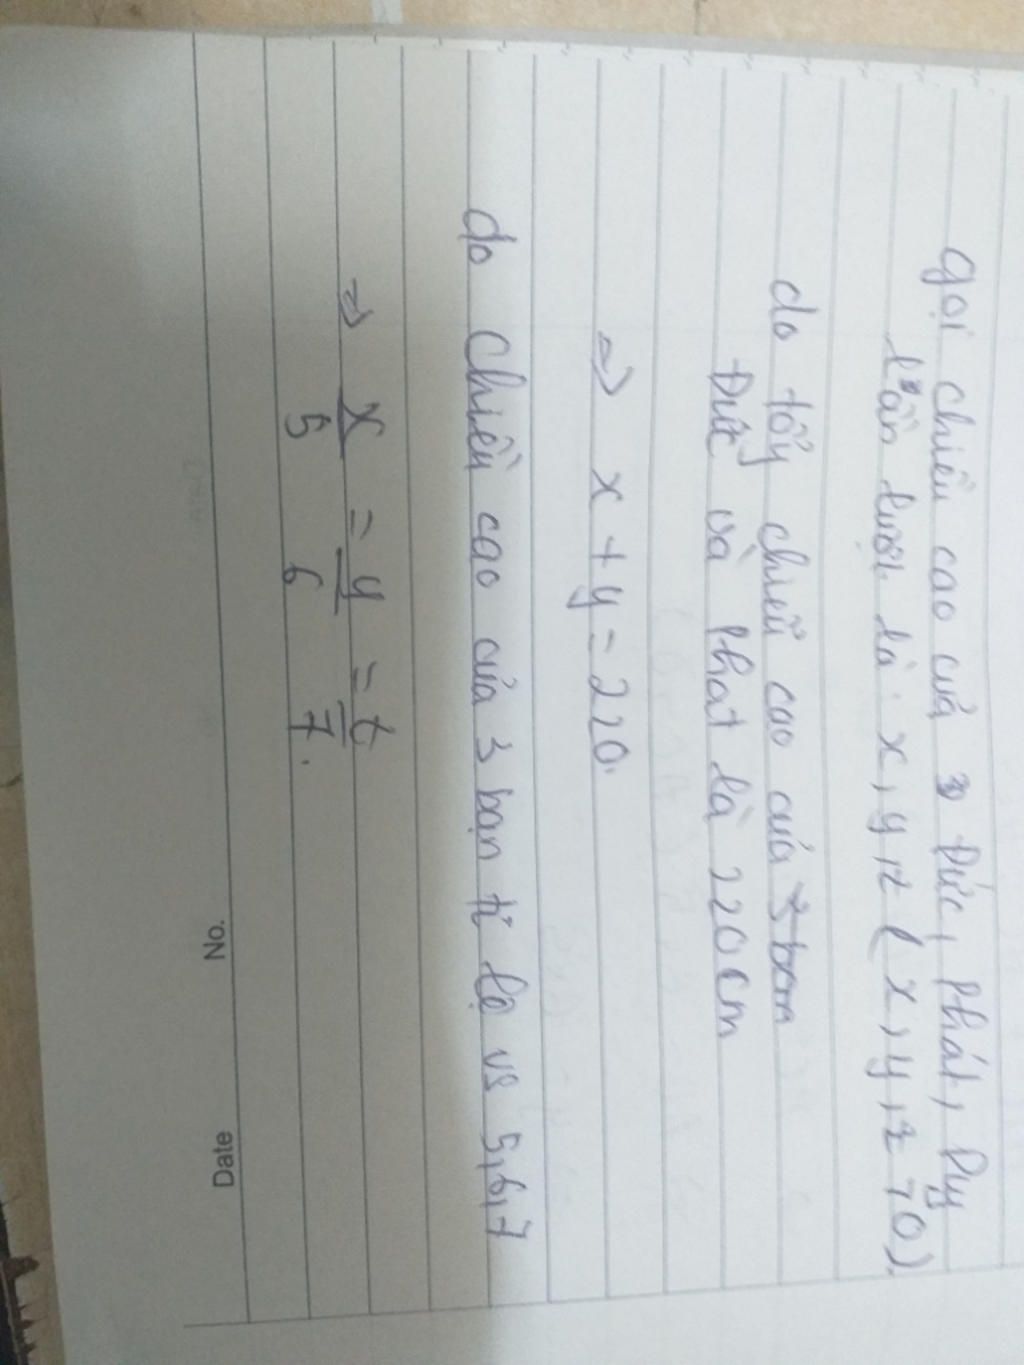 gọi chiều cao của 3 Đức, Phát, Duy
lần lượt là: x, y, z (x, y, z > 0).
do tổng chiều cao của 3 bạn
Đức và Phat là 220cm
=> x + y = 220.
do chiều cao của 3 bạn tỉ lệ vs 5, 6, 7
=> x/5 = y/6 = z/7.
No. Date